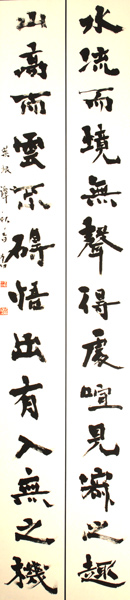 水流而境無聲得處喧見寂之趣
山高而雲不礙悟出有入無之機